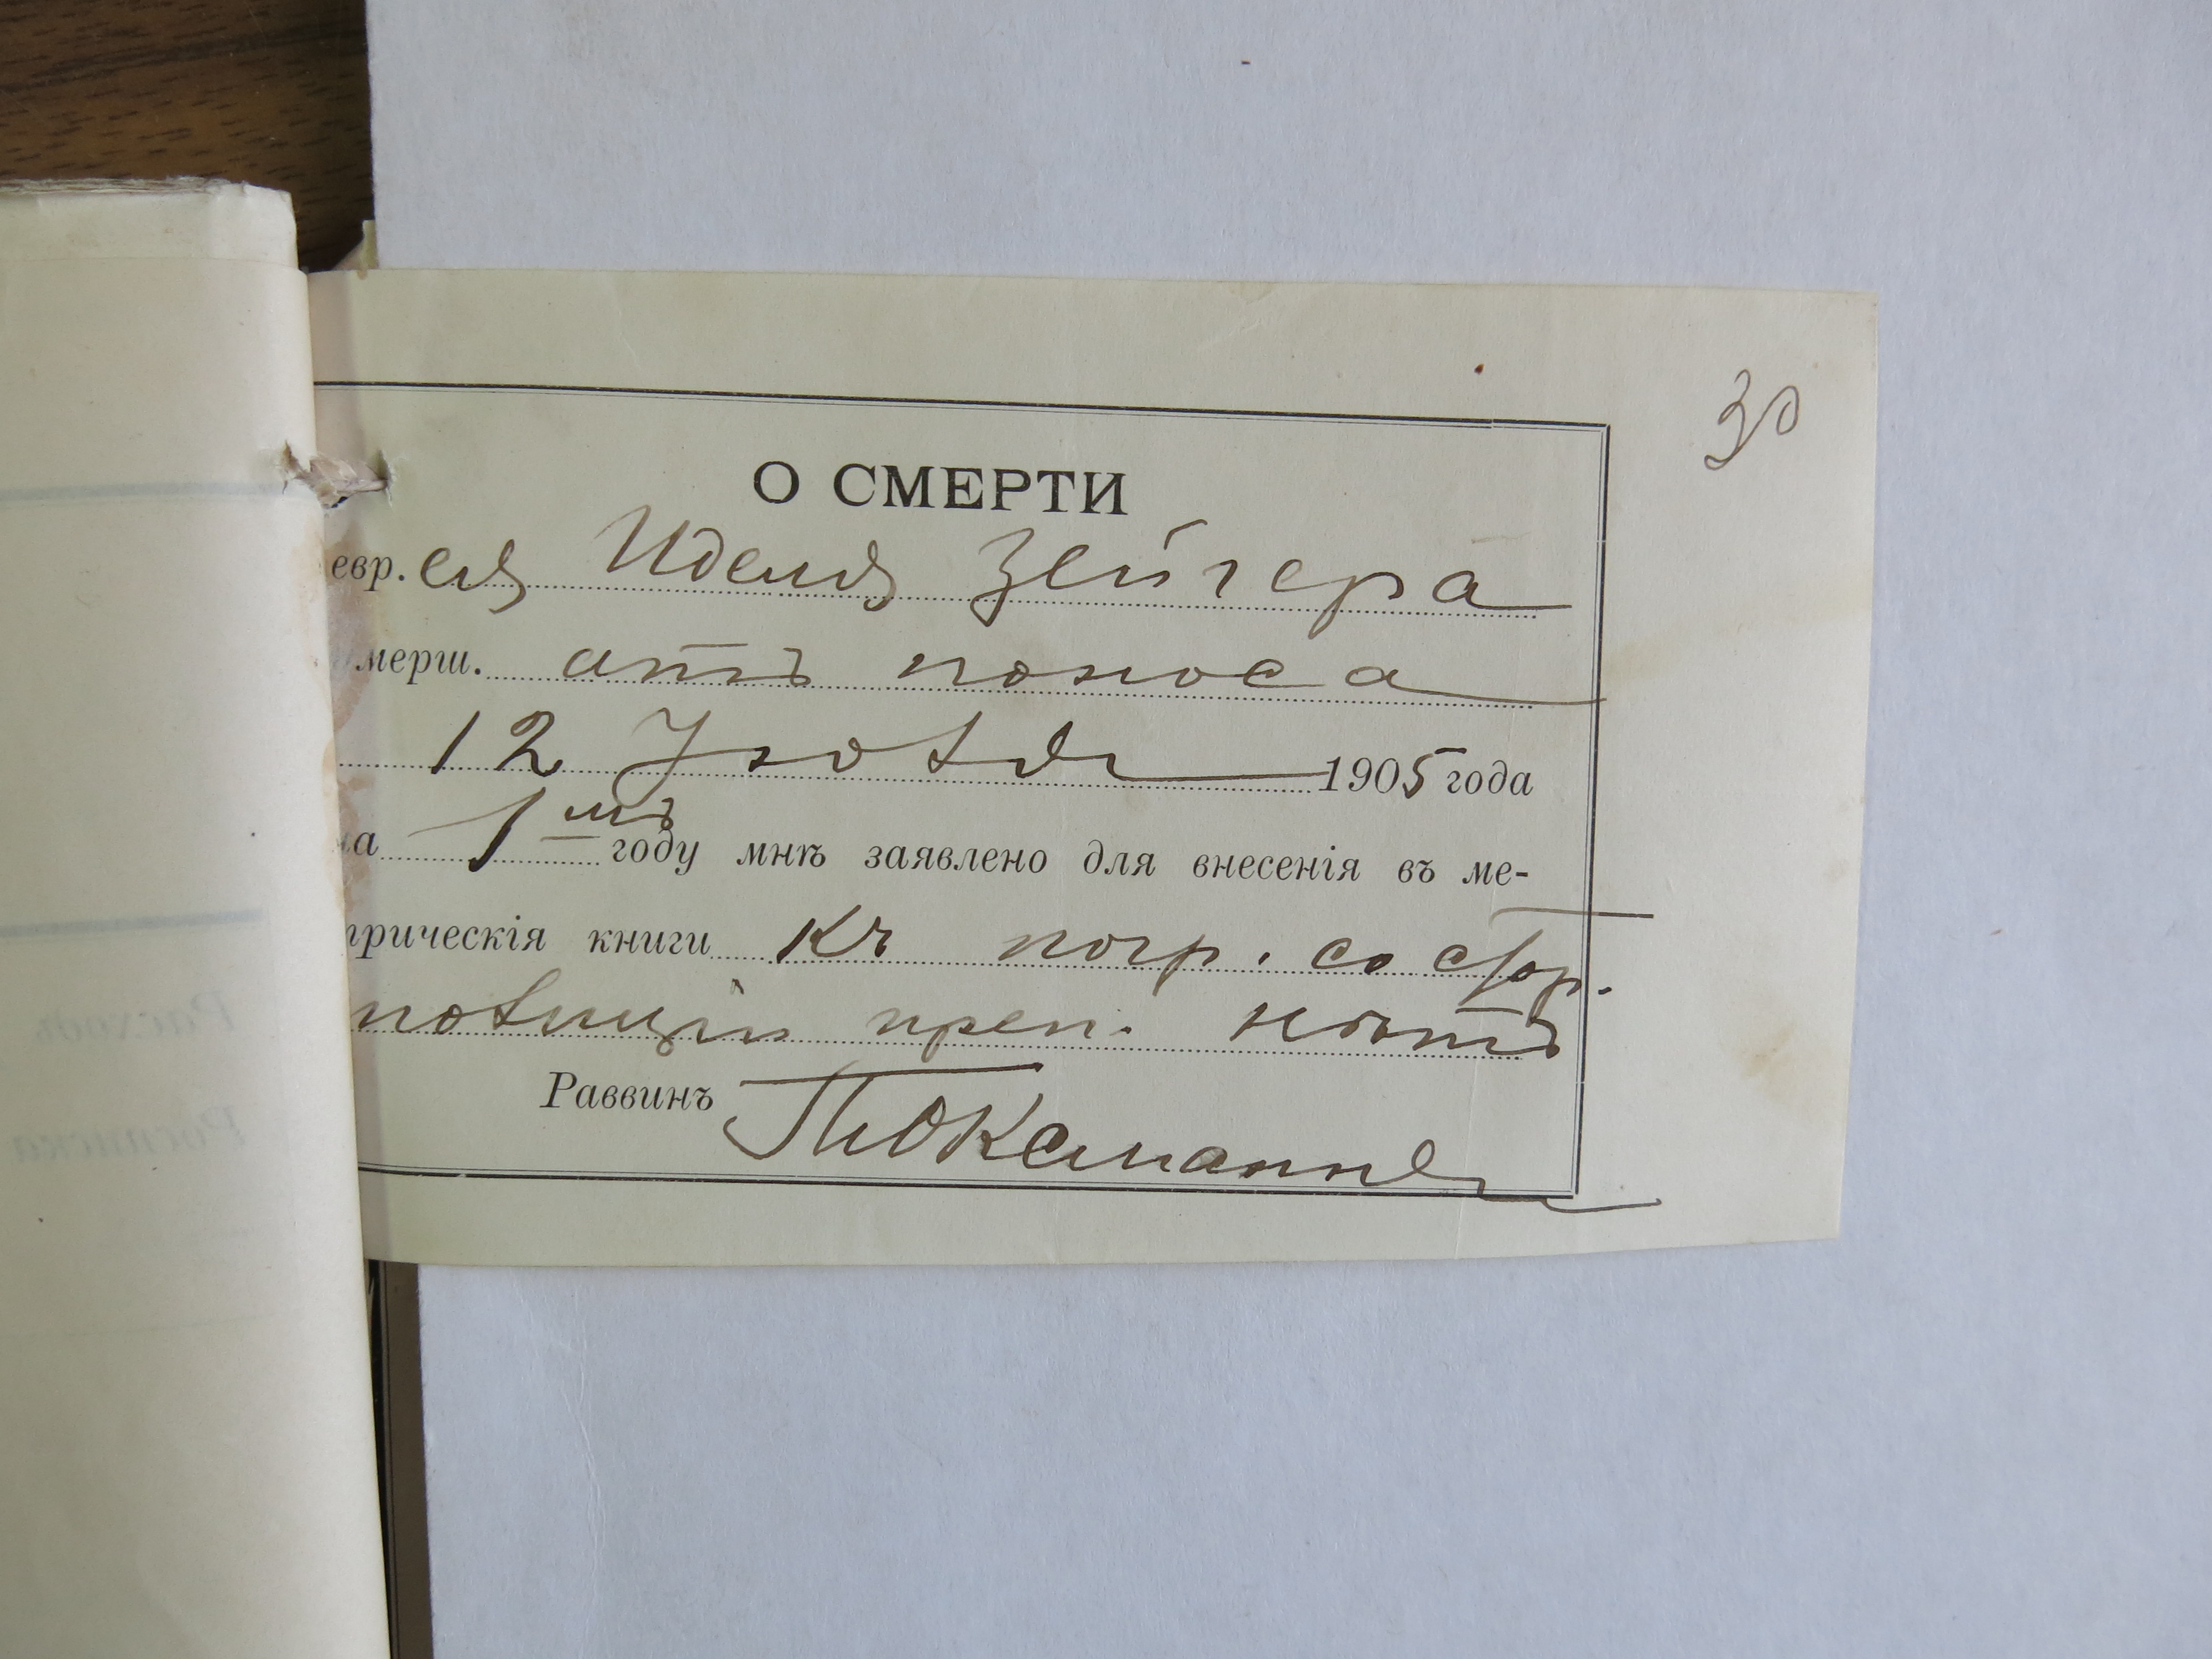 30
О СМЕРТИ
евр. ея Иделя Зейгера
умерш. отъ поноса
12 1905 года
на 1мъ году мнѣ заявлено для внесенія въ ме-
трическія книги Къ погр. со стор.
полиціи преп. нѣтъ
Раввинъ
Расходъ
Росписка